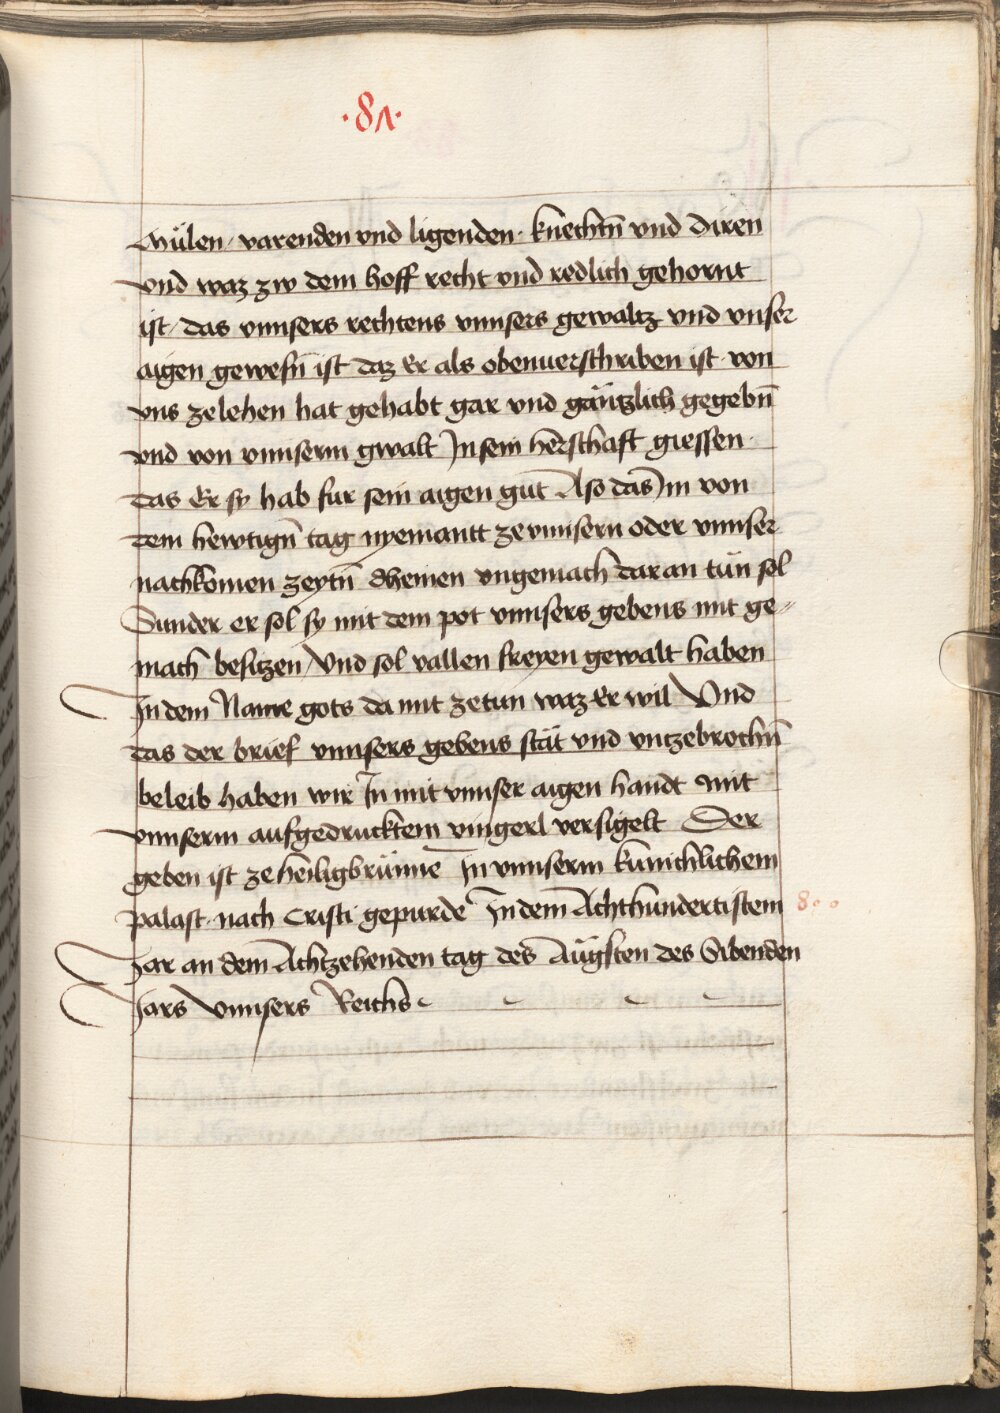 ·87·
Mülen / varenden vnd ligenden · knechtn̄ vnd diren
vnd waz zw dem hoff recht vnd redlich gehornt
ist / das vnnsers rechtens vnnsers gewaltz vnd vnser
aigen gewesn̄ ist daz Er als obenuerschriben ist von
vns zelehen hat gehabt gar vnd gäntzlich gegebn̄
vnd von vnnserm gwalt In sein herschaft giessen ·
das Er sy hab fur sein aigen gut Also das Im von
dem hewtign̄ tag nyemantt ze vnnsern oder vnnser
nachkomen zeytn̄ dheinen vngemach daran tün sol
Sunder er sol sy mit dem pot vnnsers gebens mit ge⸗
mach besitzen / Vnd sol vallen freyen gewalt haben
In dem Name gots da mit ze tun waz Er wil Vnd
das der brief vnnsers gebens stät vnd vntzebrochn̄
beleib haben wir In mit vnnser aigen handt mit
vnnserm aufgedrucktem vingerl versigelt Der
geben ist ze heiligbrünne In vnnserm kunichlichem
palast · nach Cristi gepurde In dem Achthundertistem 800
Jar an dem Achtzehenden tag des Augsten des Sibenden
Jars Vnnsers Reichs